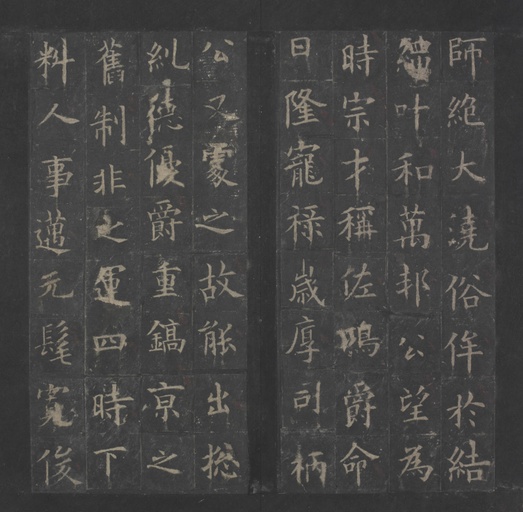 師絶大澆俗侔於結
叶和萬邦公望為
時宗才稱佐鳴爵命
日隆寵禄歳厚司柄
公又處之故能出揔
糺德優爵重鎬京之
舊制非之運四時下
料人事邁元髦寛俊